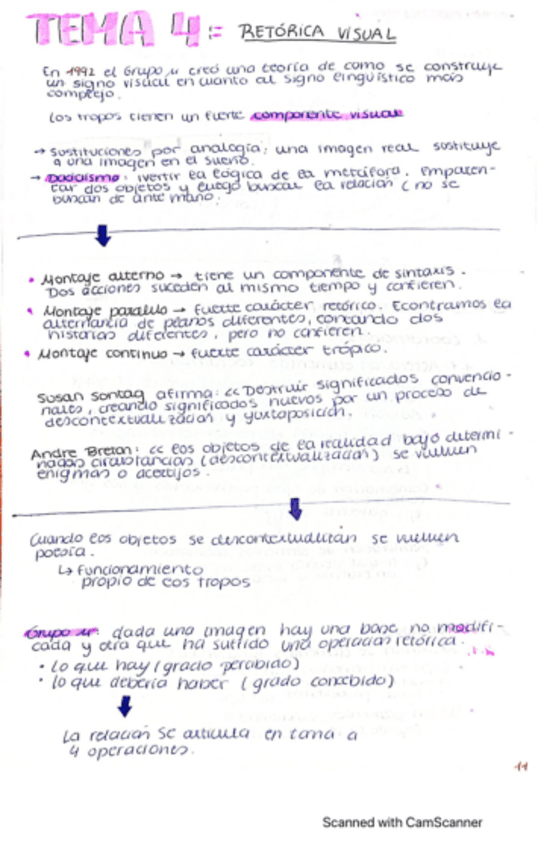 TEMA 4: RETÓRICA VISUAL
En 1992 el Grupo µ creó una teoría de como se construye
un signo visual en cuanto al signo lingüístico más
complejo.
Los tropos tienen un fuerte componente visual
→ Sustituciones por analogía: una imagen real sustituye
a una imagen en el sueño.
→ Dadaísmo: ivertir la lógica de la metáfora. Emparen-
tar dos objetos y luego buscar la relación (no se
buscan de ante mano.
• Montaje alterno → tiene un componente de sintaxis.
Dos acciones suceden al mismo tiempo y confieren.
• Montaje paralelo → fuerte carácter retórico. Econtramos la
alternancia de planos diferentes, contando dos
historias diferentes, pero no confieren.
• Montaje continuo → fuerte carácter trópico.
Susan Sontag afirma: << Destruir significados convencio-
nales, creando significados nuevos por un proceso de
descontextualización y yuxtaposición.
Andre Breton: << los objetos de la realidad bajo determi-
nadas circustancias (descontextualización) se vuelven
enigmas o acertijos.
Cuando los objetos se se vuelven
poesía.
↳ funcionamiento
propio de los tropos
Grupo µ: dada una imagen hay una base no modifi-
cada y otra que ha sufrido una operación retórica.
• lo que hay (grado percibido)
• lo que debería haber (grado concebido)
La relación se articula en torno a
4 operaciones.
11
Scanned with CamScanner